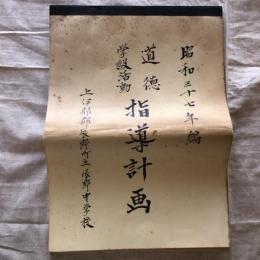 昭和三十七年編
道徳
学級活動
指導計画
上伊那郡辰野町立辰野中学校